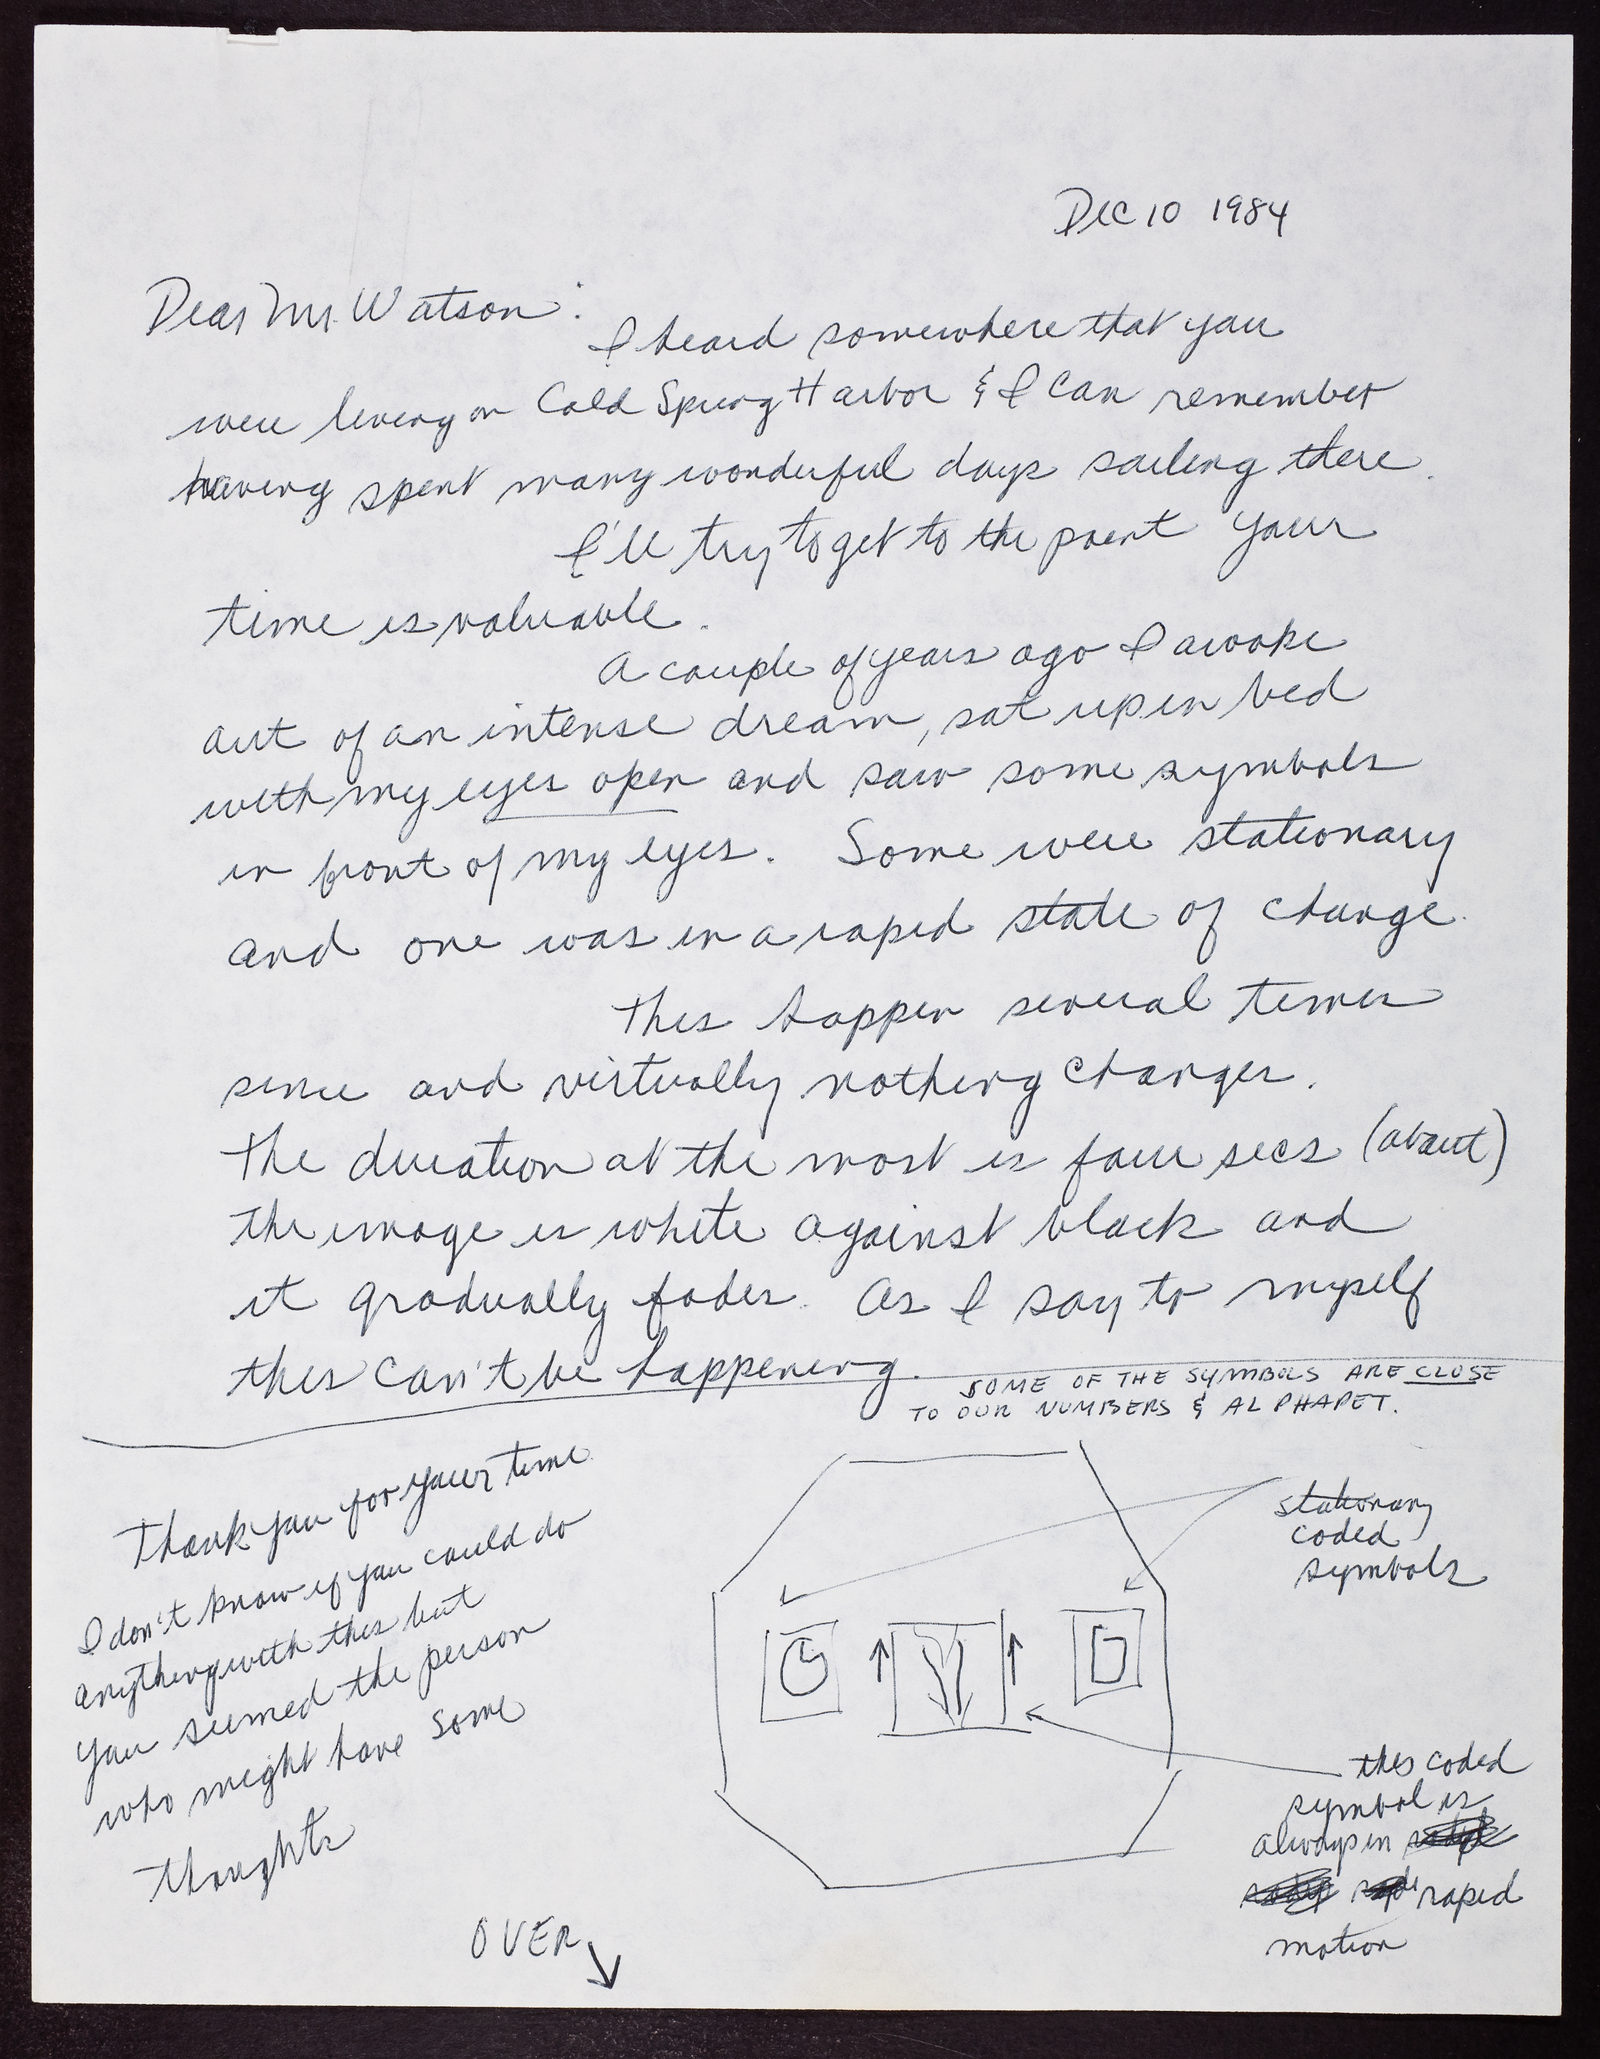 Dec 10 1984
Dear Mr. Watson:
I heard somewhere that you
were living on Cold Spring Harbor & I can remember
having spent many wonderful days sailing there.
I'll try to get to the point your
time is valuable.
A couple of years ago I awoke
out of an intense dream, sat up in bed
with my eyes open and saw some symbols
in front of my eyes. Some were stationary
and one was in a rapid state of change.
This happen several times
since and virtually nothing changes.
The duration at the most is four secs (about)
The image is white against black and
it gradually fades. As I say to myself
this can't be happening.
SOME OF THE SYMBOLS ARE CLOSE
TO OUR NUMBERS & ALPHAPET.
Thank you for your time
I don't know if you could do
anything with this but
you seemed the person
who might have some
thoughts
OVER
stationary
coded
symbols
this coded
symbol is
always in
rapid
motion